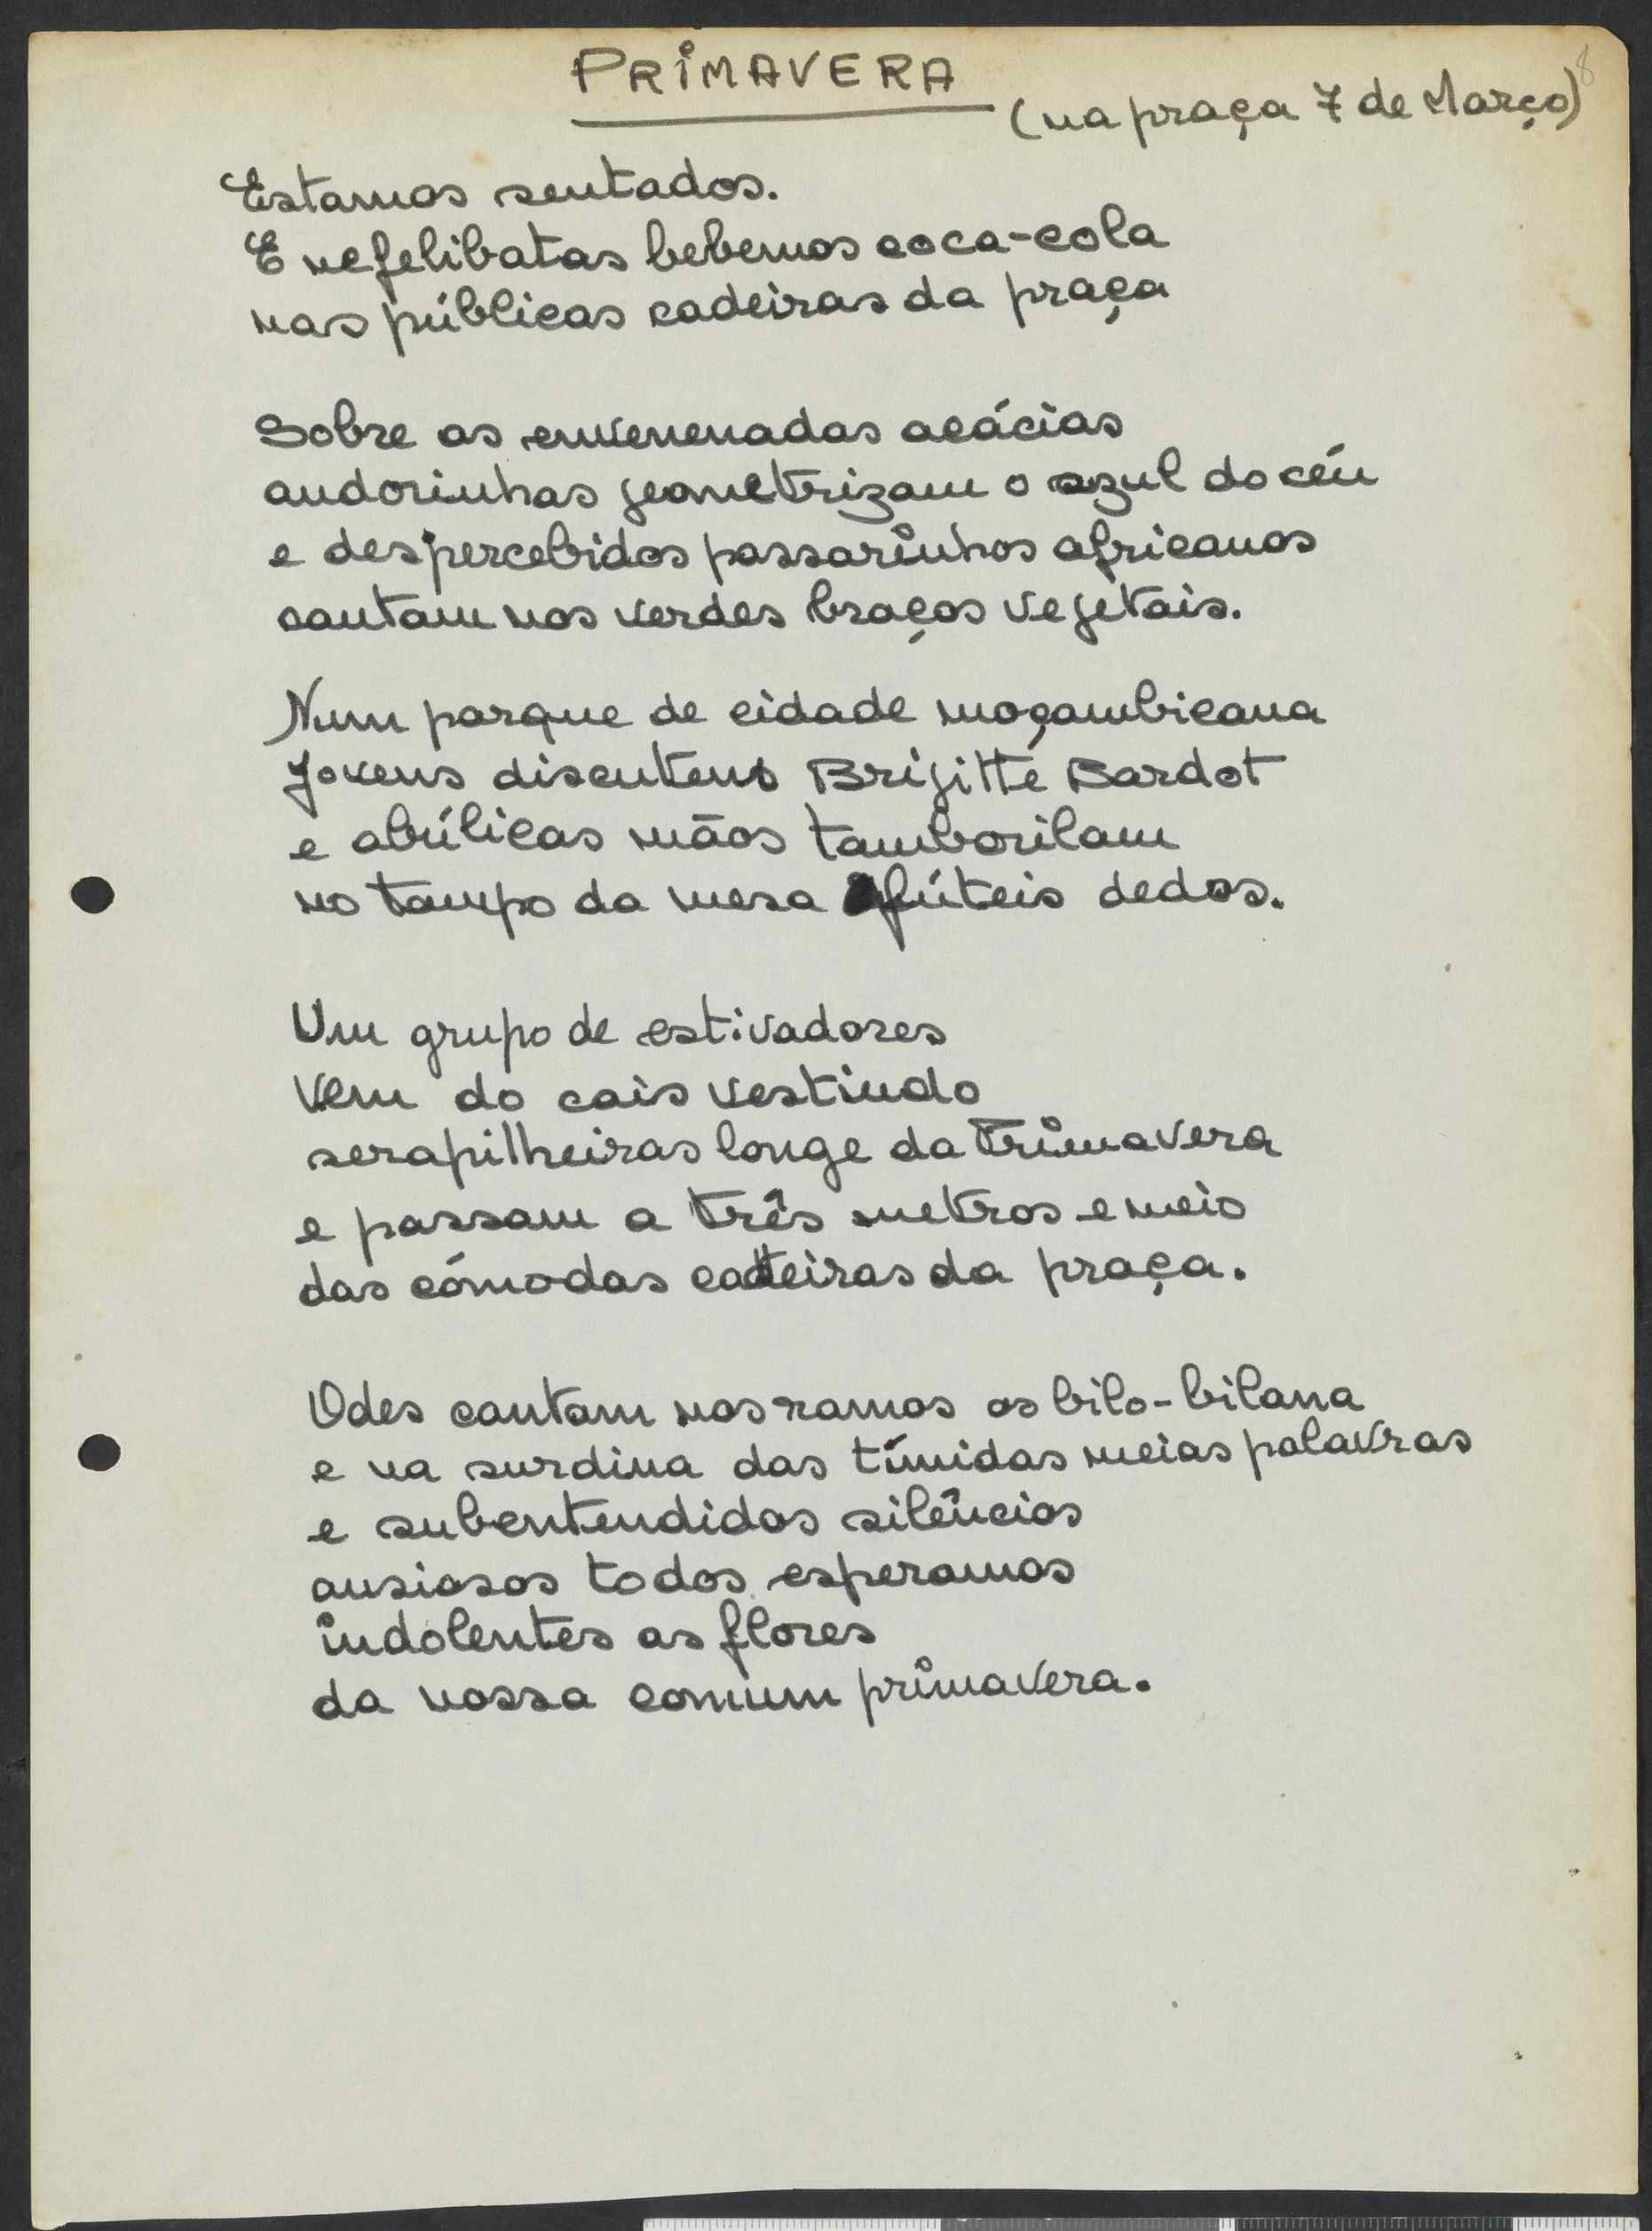 PRIMAVERA
(na praça 7 de Março)
8
Estamos sentados.
E nefelibatas bebemos coca-cola
nas públicas cadeiras da praça
Sobre as envenenadas acácias
andorinhas geometrizam o azul do céu
e despercebidos passarinhos africanos
cantam nos verdes braços vegetais.
Num parque de cidade moçambicana
Jovens discutem Brigitte Bardot
e abúlicas mãos tamborilam
no tampo da mesa fúteis dedos.
Um grupo de estivadores
Vem do cais vestindo
serapilheiras longe da Primavera
e passam a três metros e meio
das cómodas cadeiras da praça.
Odes cantam nos ramos os bilo-bilana
e na surdina das tímidas meias palavras
e subentendidos silêncios
ansiosos todos esperamos
indolentes as flores
da nossa comum primavera.